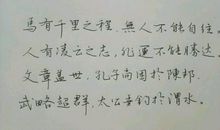 馬有千里之程，無人不能自往。
人有凌云之志，非運不能騰達。
文章蓋世，孔子尚困於陳邦。
武略超群，太公垂釣於渭水。